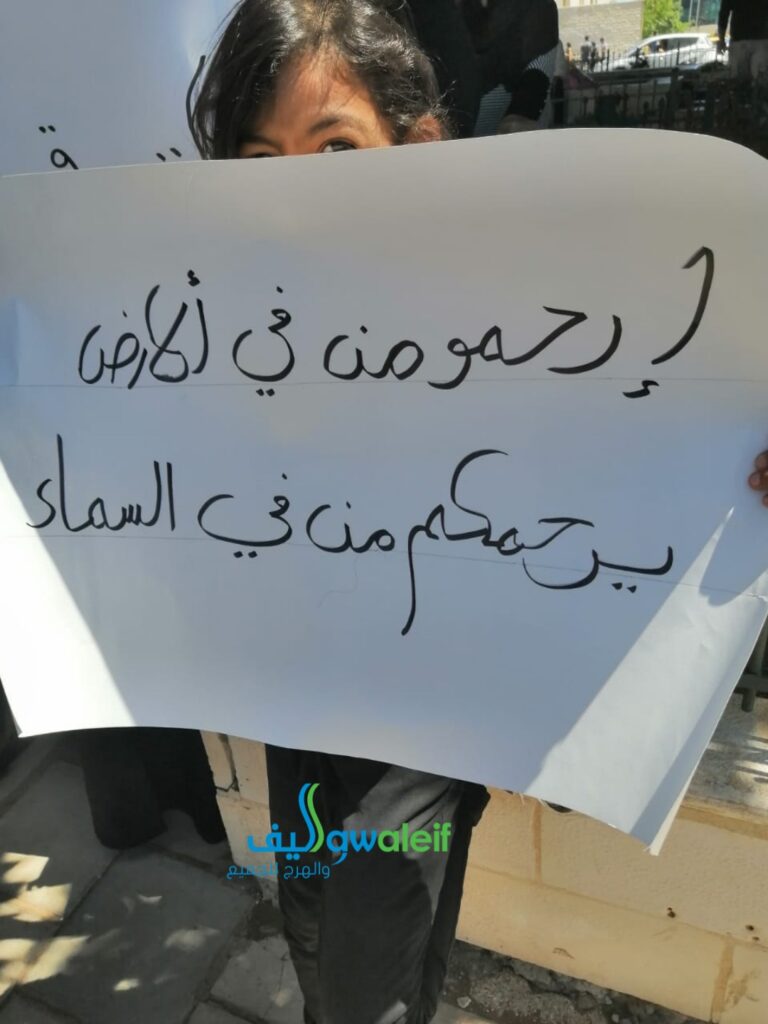 إرحمو من في ألارض
يرحمكم من في السماء
سواليف waleif